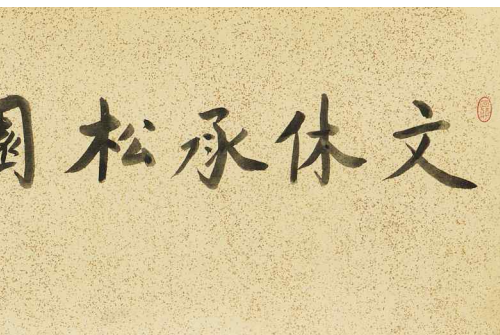 文休承松園